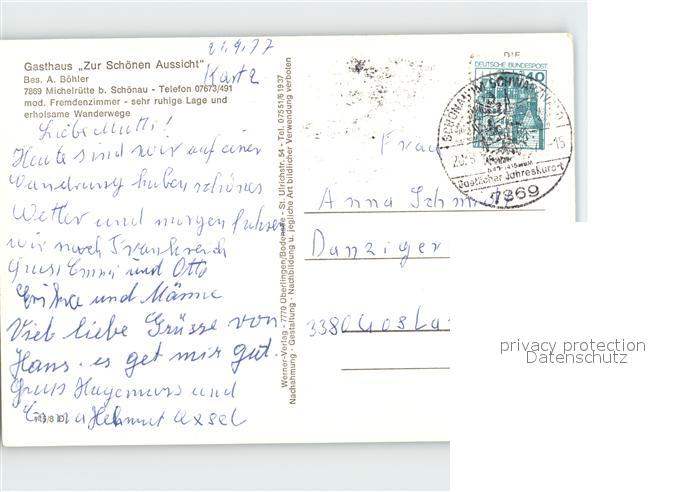 21.9.77
Karte
Gasthaus „Zur Schönen Aussicht"
Bes. A. Böhler
7869 Michelrütte b. Schönau - Telefon 07673/491
mod. Fremdenzimmer - sehr ruhige Lage und
erholsame Wanderwege
Liebe Mutti!
Heute sind wir auf einer
Wanderung haben schönes
Wetter und morgen fahren
wir nach Frankreich
Gruss Emmi und Otto
Erika und Männe
Viele liebe Grüsse von
Hans. es get mir gut.
Gruss Hagemurs und
Helmut Axel
Werner-Verlag - 7770 Überlingen/Bodensee - St. Ulrichstr. 54 - Tel. 07551/61937
Nachahmung - Gestaltung - Nachbildung u. jegliche Art bildlicher Verwendung verboten
DEUTSCHE BUNDESPOST
40
SCHÖNAU IM SCHWARZWALD
-15
Staatlicher Jahreskurort
7869
Frau
Anna Schmidt
Danziger
3380 Gosla
privacy protection
Datenschutz